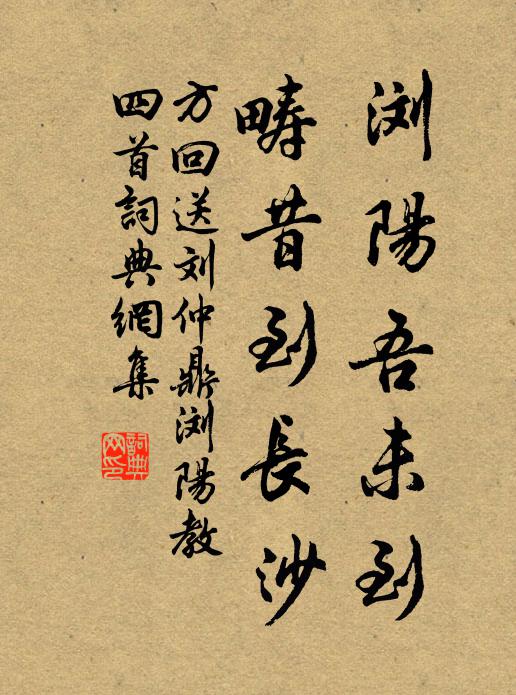 浏陽吾未到
疇昔到長沙
方回送刘仲鼎浏陽教
四首詞典網集
詞典
网印